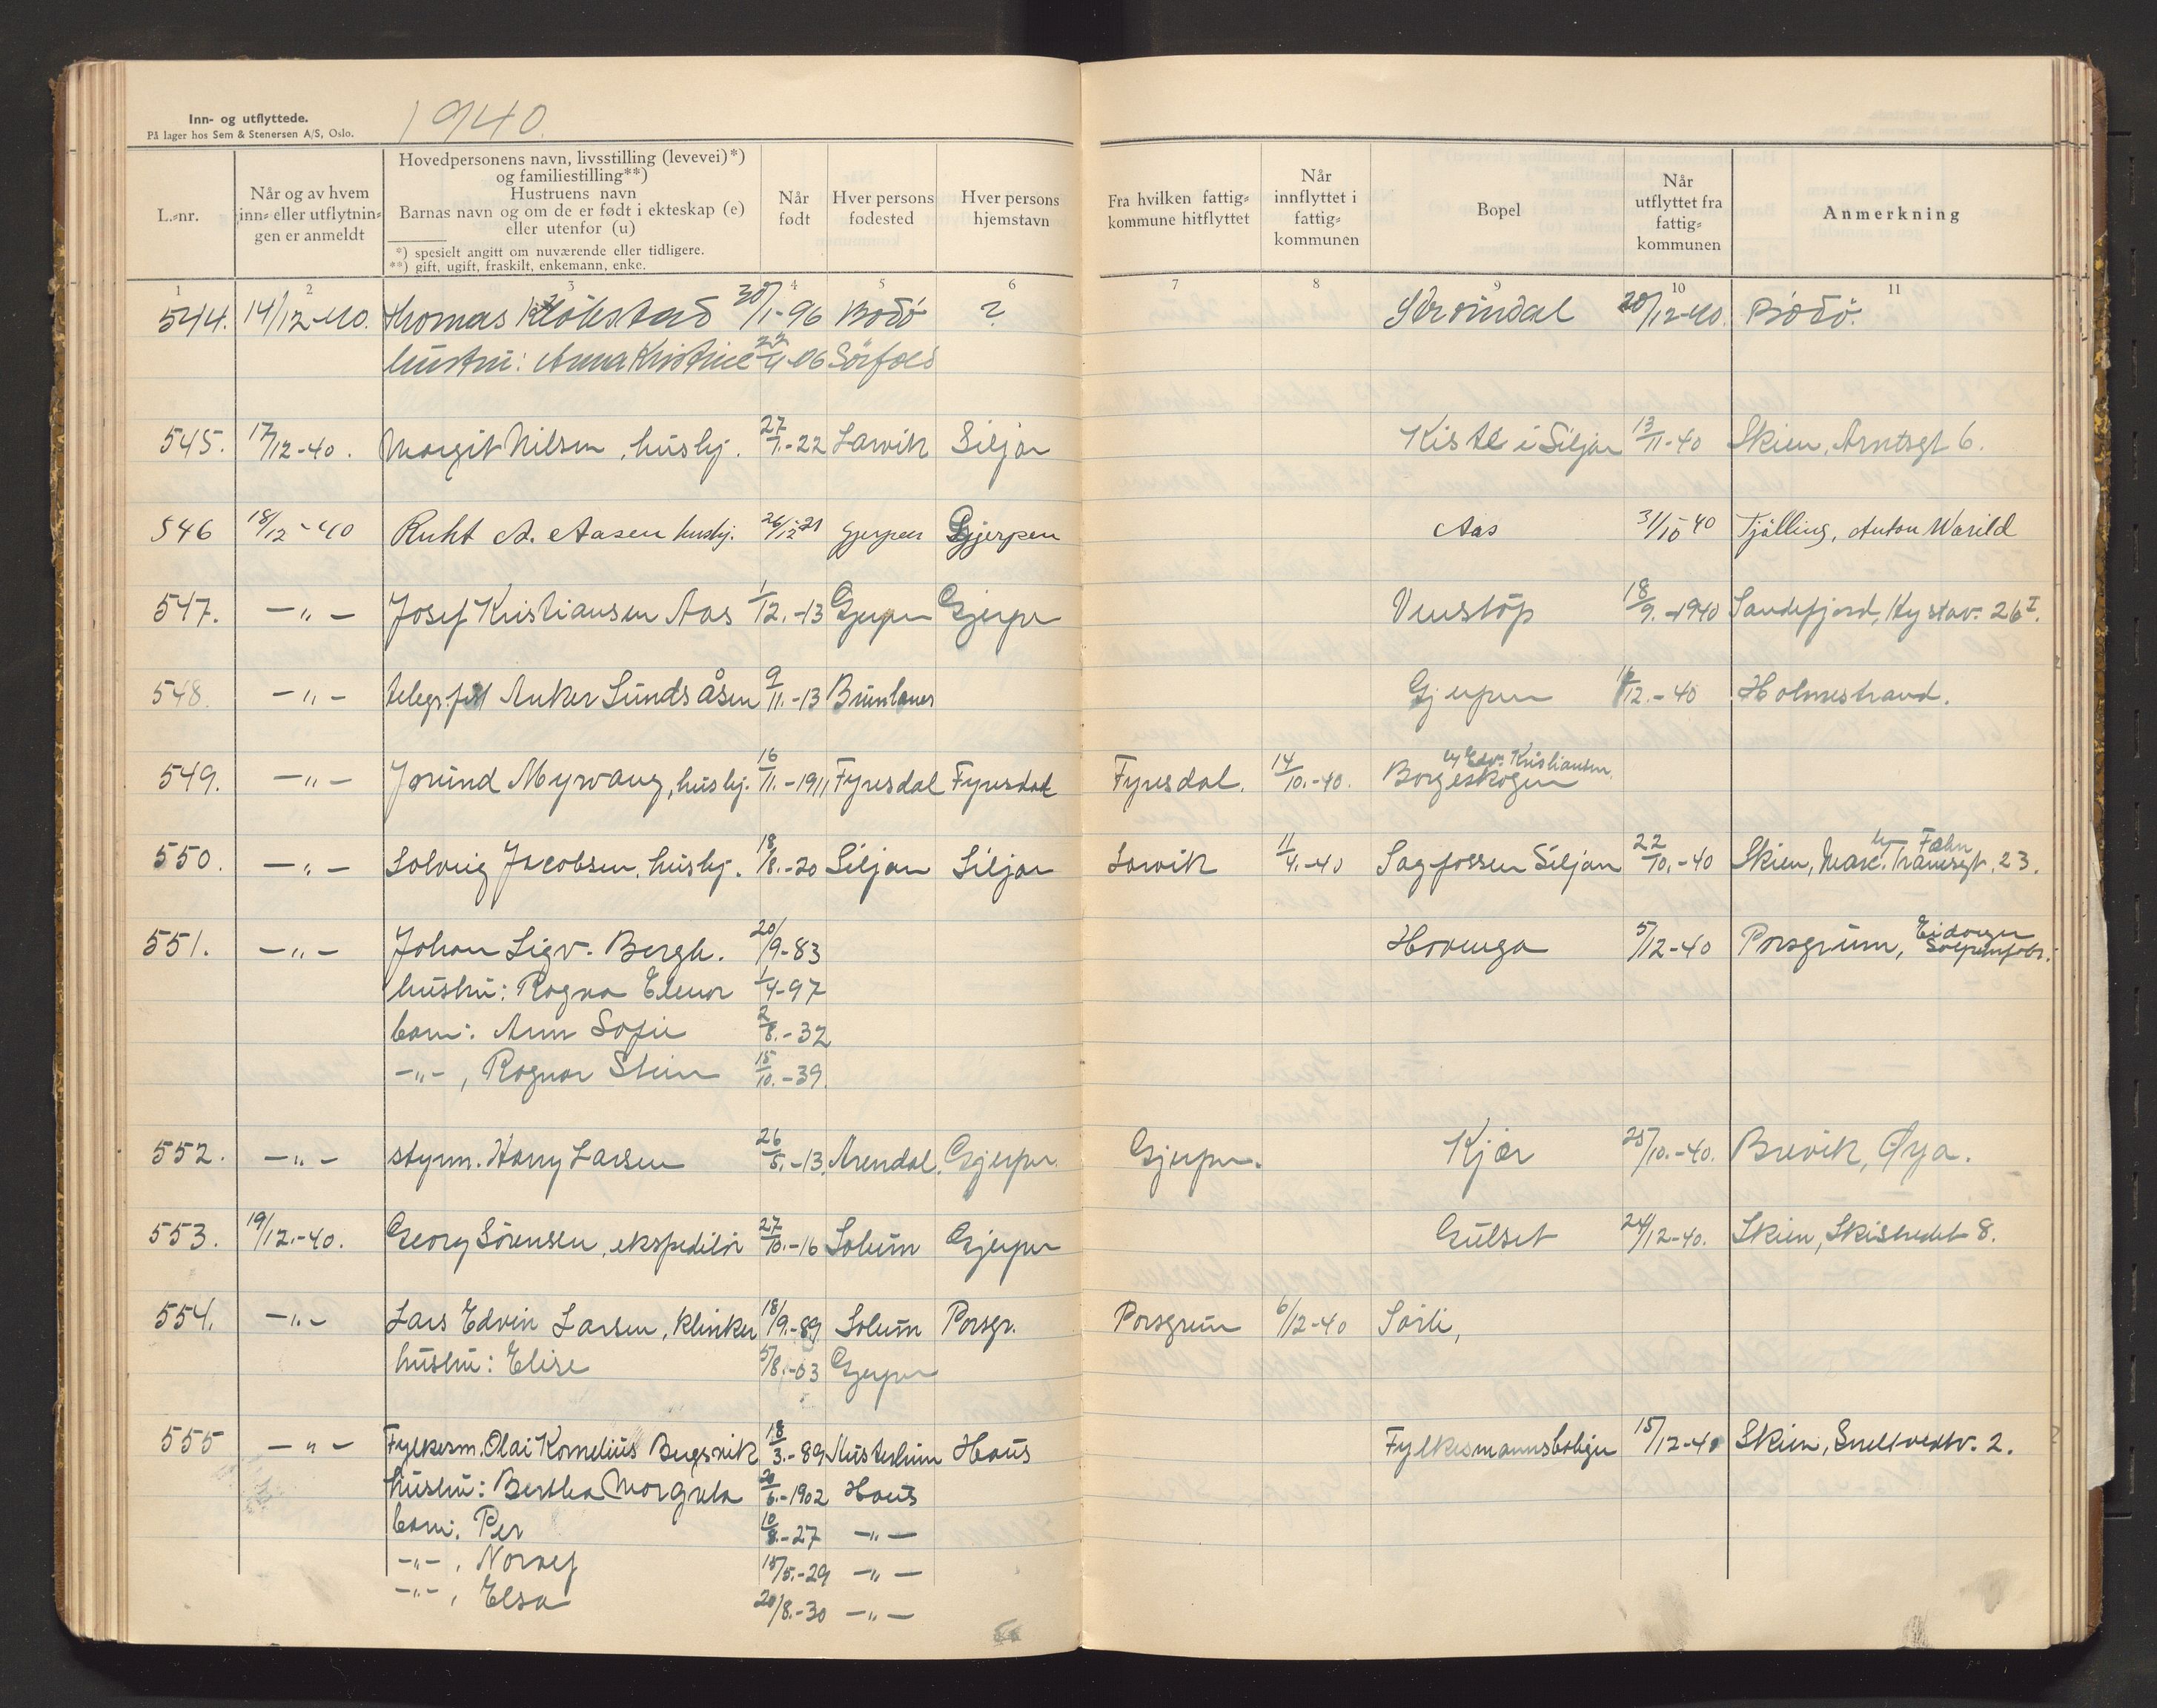 Inn- og utflyttede.
På lager hos Sem & Stenersen A/S, Oslo.
1940.
L.-nr.
Når og av hvem
inn- eller utflytnin-
gen er anmeldt
Hovedpersonens navn, livsstilling (levevei)*)
og familiestilling**)
Hustruens navn
Barnas navn og om de er født i ekteskap (e)
eller utenfor (u)
*) spesielt angitt om nuværende eller tidligere.
**) gift, ugift, fraskilt, enkemann, enke.
Når
født
Hver persons
fødested
Hver persons
hjemstavn
Fra hvilken fattig-
kommune hitflyttet
Når
innflyttet i
fattig-
kommunen
Bopel
Når
utflyttet fra
fattig-
kommunen
Anmerkning
1 2 3 4 5 6 7 8 9 10 11
544. 14/12-40. Thomas 30/1-96 Bodö ? 20/12-40. Bodö.
hustru: Anna Kristine 22/4-06 Sörfold
545. 17/12-40. Margit Nilsen, hushj. 27/7.-22 Larvik Siljan Kiste i Siljan 13/11-40 Skien, Arntsgt 6.
546 18/12-40 Ruht A. Aasen hushj. 26/12-21 Gjerpen Gjerpen Aas 31/10 40 Tjölling, Anton Warild
547. -"- Josef Kristiansen Aas 1/12.-13 Gjerpen Gjerpen Venstöp 18/9.-1940 Sandefjord, Kystav. 26 I.
548. -"- Anker Sundsåsen 9/11.-13 Brunlanes Gjerpen /12.-40 Holmestrand.
549. -"- Jorund Myrvang, hushj. 16/11.-1911 Fyresdal Fyresdal Fyresdal. 14/10.-40. Borgeskogen
v/ Edv. Kristiansen.
550. -"- Solveig Jacobsen, hushj. 18/8.-20 Siljan Siljan Larvik 11/4.-40 Sagfossen Siljan 22/10.-40 Skien, Marc. Thranesgt. 23.
551. -"- Johan Sigv. Bergh. 20/9-83 Hovenga 5/12-40 Porsgrunn, Eidanger
hustru: Ragna Elenor 1/4-97
barn: Ann Sofie 2/8.-32
-"-, Ragnar Stein 15/10.-39
552. -"- styrm. Harry Larsen 26/5.-13. Arendal. Gjerpen. Gjerpen. Kjær 25/10.-40. Brevik, Øya.
553. 19/12.-40. Georg Sörensen, ekspeditör 27/10.-16 Solum Gjerpen Gulset 24/12-40. Skien, Skistredet 8.
554. -"- Lars Edvin Larsen, klinker 18/9.-89 Solum Porsgr. Porsgrunn 6/12-40 Sörli,
hustru: Elise 5/8.-03 Gjerpen
555 -"- Fylkesm. Olai Kornelius Bugsvik 18/3.-89 Austerheim Haus Fylkesmannsboligen 15/12-40 Skien, Sneltvedtv. 2.
hustru: Bertha Margreta 20/6.-1902 Haus
barn: Per 10/8.-27 -"-
-"-, Norvef 15/5.-29 -"-
-"-, Elsa 20/8.-30 -"-